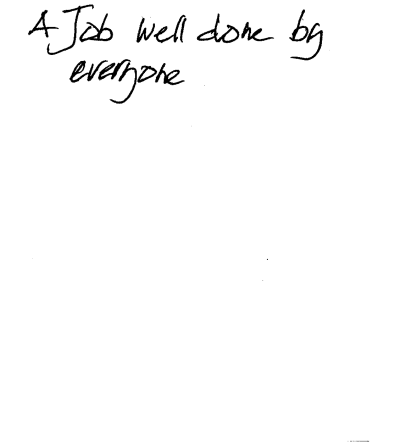 A Job well done by
everyone